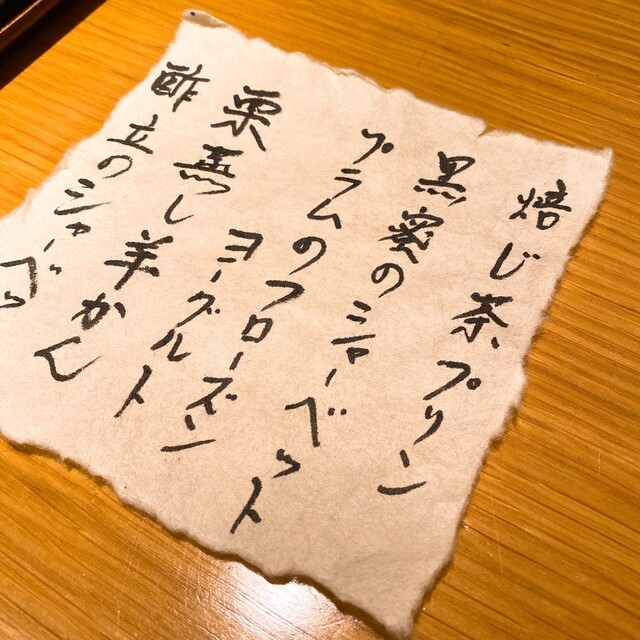 焙じ茶プリン
黒蜜のシャーベット
プラムのフローズン
ヨーグルト
栗蒸し羊かん
酢立のシャーベッ